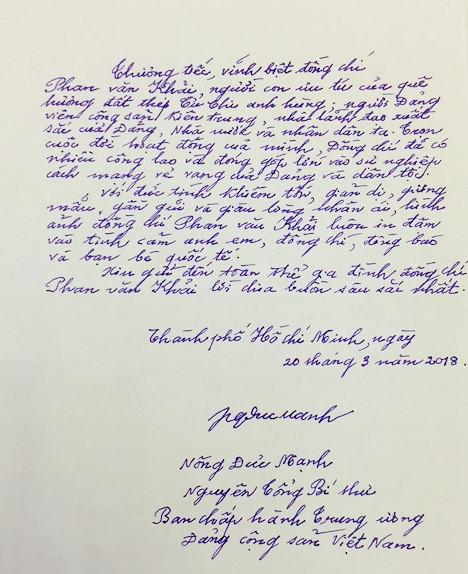 Thương tiếc, vĩnh biệt đồng chí
Phan Văn Khải, người con ưu tú của quê
hương đất thép Củ Chi anh hùng, người Đảng
viên cộng sản kiên trung, nhà lãnh đạo xuất
sắc của Đảng, Nhà nước và nhân dân ta. Trong
cuộc đời hoạt động của mình, Đồng chí đã có
nhiều công lao và đóng góp lớn vào sự nghiệp
cách mạng vẻ vang của Đảng và dân tộc.
Với đức tính khiêm tốn, giản dị, gương
mẫu, gần gũi và giàu lòng nhân ái, hình
ảnh đồng chí Phan Văn Khải luôn in đậm
vào tình cảm anh em, đồng chí, đồng bào
và bạn bè quốc tế.
Xin gửi đến toàn thể gia đình đồng chí
Phan Văn Khải lời chia buồn sâu sắc nhất.
Thành phố Hồ Chí Minh, ngày
20 tháng 3 năm 2018.
Nông Đức Mạnh
Nguyên Tổng Bí thư
Ban chấp hành Trung ương
Đảng cộng sản Việt Nam.